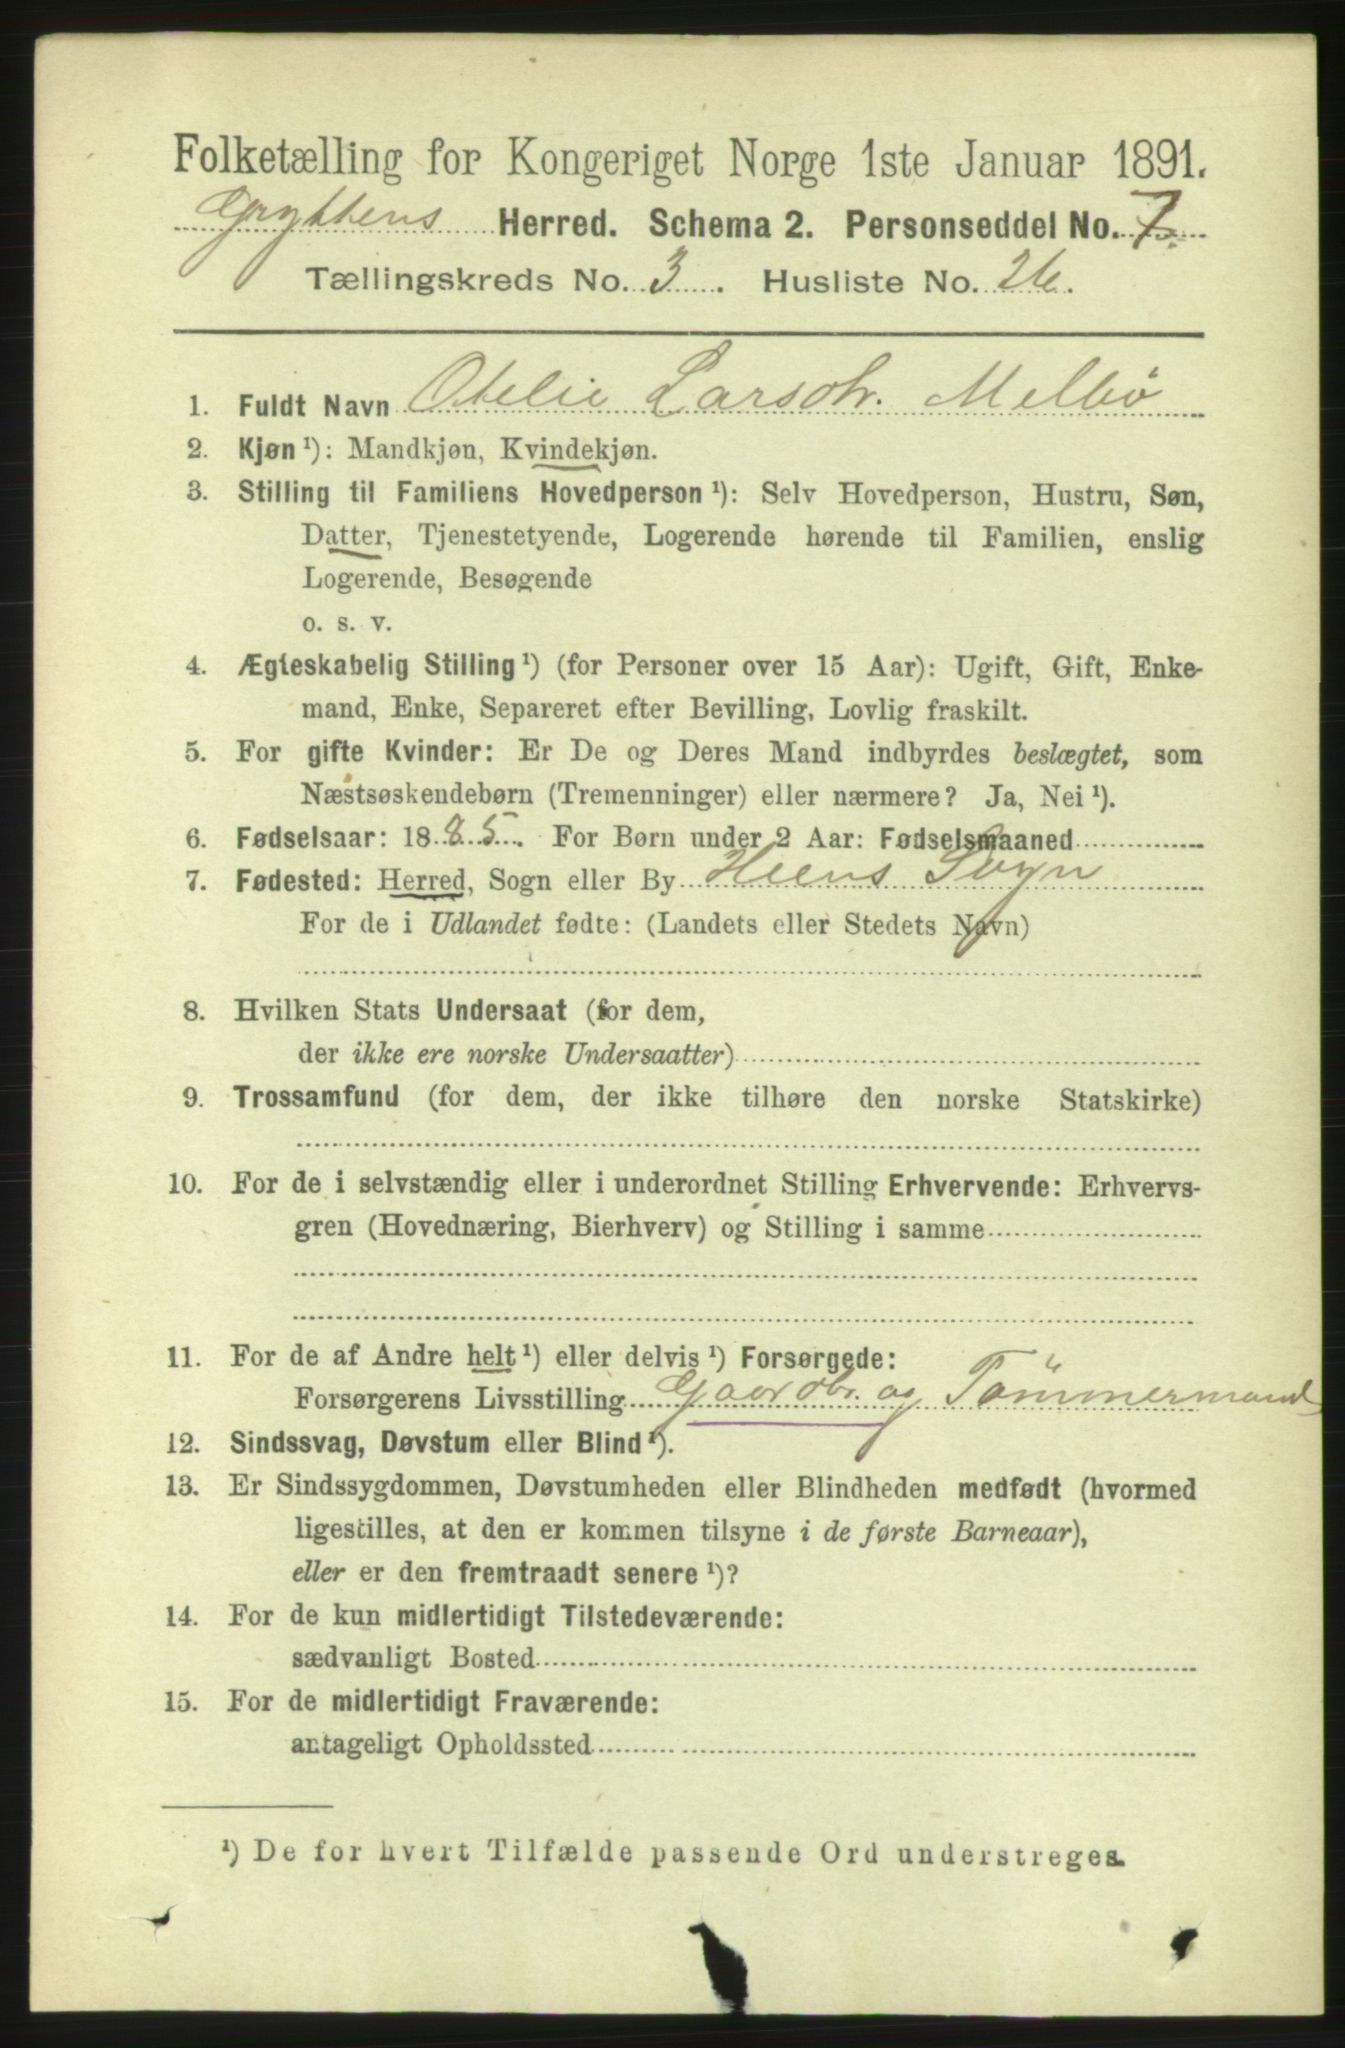 Folketælling for Kongeriget Norge 1ste Januar 1891.
Gryttens Herred. Schema 2. Personseddel No. 7.
Tællingskreds No. 3. Husliste No. 26.
1. Fuldt Navn Otelie Larsdtr. Melbö
2. Kjøn ¹): Mandkjøn, Kvindekjøn.
3. Stilling til Familiens Hovedperson ¹): Selv Hovedperson, Hustru, Søn,
Datter, Tjenestetyende, Logerende hørende til Familien, enslig
Logerende, Besøgende
o. s. v.
4. Ægteskabelig Stilling ¹) (for Personer over 15 Aar): Ugift, Gift, Enke-
mand, Enke, Separeret efter Bevilling, Lovlig fraskilt.
5. For gifte Kvinder: Er De og Deres Mand indbyrdes beslægtet, som
Næstsøskendebørn (Tremenninger) eller nærmere? Ja, Nei ¹).
6. Fødselsaar: 1885. For Børn under 2 Aar: Fødselsmaaned
7. Fødested: Herred, Sogn eller By Heens Sogn
For de i Udlandet fødte: (Landets eller Stedets Navn)
8. Hvilken Stats Undersaat (for dem,
der ikke ere norske Undersaatter)
9. Trossamfund (for dem, der ikke tilhøre den norske Statskirke)
10. For de i selvstændig eller i underordnet Stilling Erhvervende: Erhvervs-
gren (Hovednæring, Bierhverv) og Stilling i samme
11. For de af Andre helt ¹) eller delvis ¹) Forsørgede:
Forsørgerens Livsstilling Gaardbr. og Tömmermand
12. Sindssvag, Døvstum eller Blind ¹).
13. Er Sindssygdommen, Døvstumheden eller Blindheden medfødt (hvormed
ligestilles, at den er kommen tilsyne i de første Barneaar),
eller er den fremtraadt senere ¹)?
14. For de kun midlertidigt Tilstedeværende:
sædvanligt Bosted
15. For de midlertidigt Fraværende:
antageligt Opholdssted
¹) De for hvert Tilfælde passende Ord understreges.